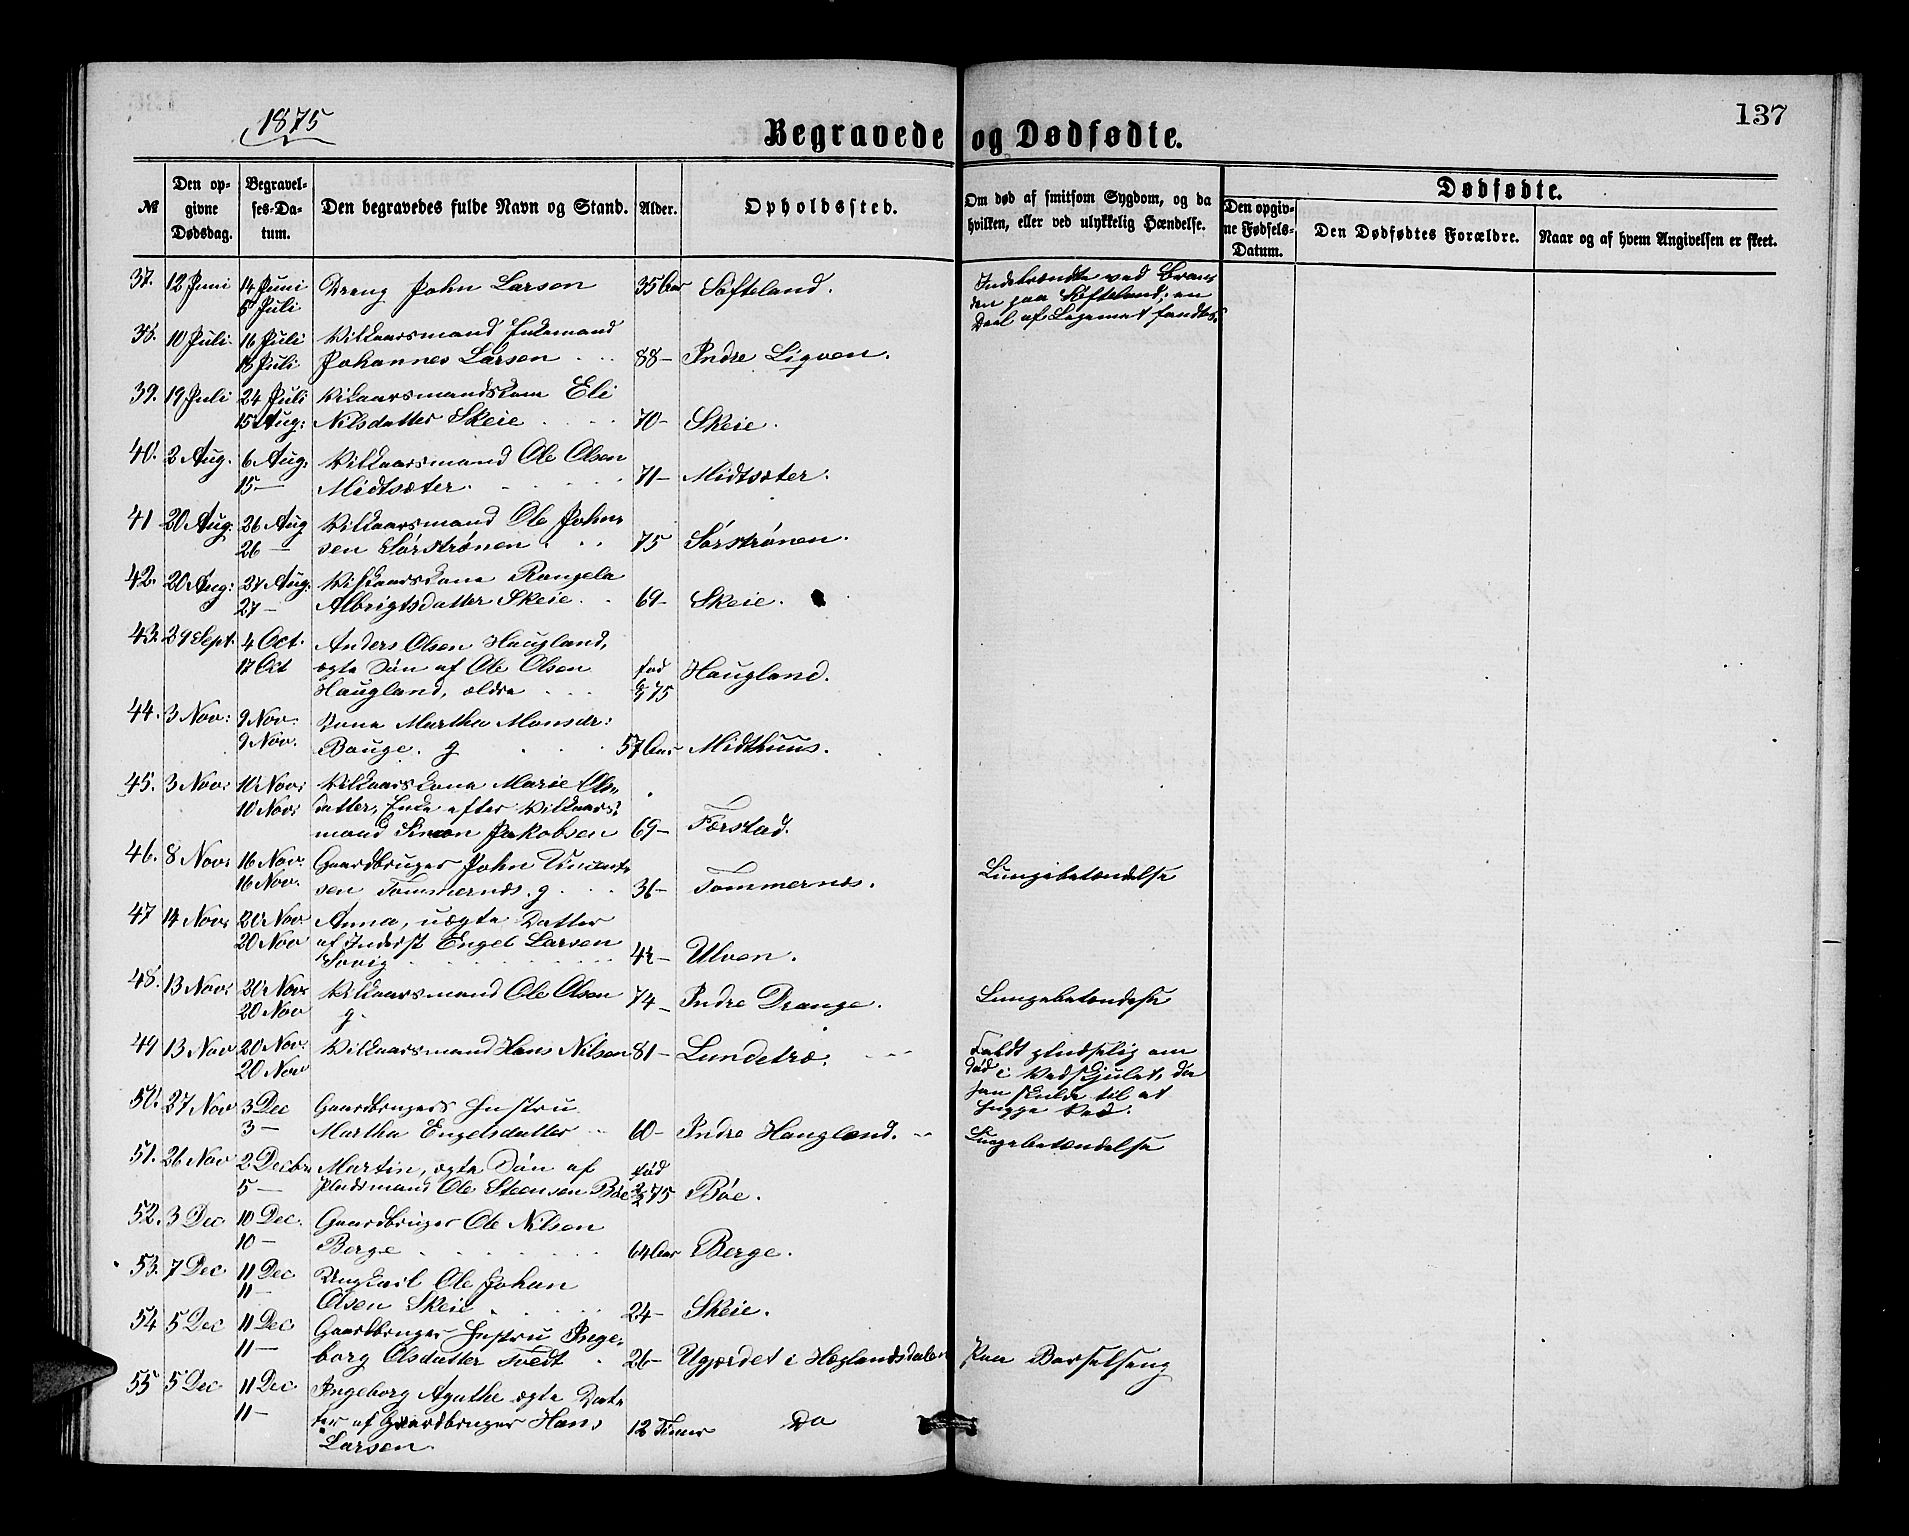 1875
137
Begravede og Dødfødte.
№
Den op-
givne
Dødsdag.
Begravel-
ses-Da-
tum.
Den begravedes fulde Navn og Stand.
Alder.
Opholdssted.
Om død af smitsom Sygdom, og da
hvilken, eller ved ulykkelig Hændelse.
Dødfødte.
Den opgiv-
ne Fødsels-
Datum.
Den Dødfødtes Forældre.
Naar og af hvem Angivelsen er skeet.
37. 12 Juni 14 Juni Dreng John Larsen 35 Aar Søfteland. Indebrændte ved Bran-
5 Juli den paa Søfteland; en
Deel af Legemet fandtes.
38. 10 Juli. 16 Juli Vilkaarsmand Enkemand
18 Juli Johannes Larsen 88- Indre Ligven.
39. 19 Juli 24 Juli Vilkaarsmandskone Eli
15 Aug: Nilsdatter Skeie 70- Skeie.
40. 2 Aug. 6 Aug: Vilkaarsmand Ole Olsen
15- Midtsæter. 71- Midtsæter.
41 20 Aug: 26 Aug Vilkaarsmand Ole Johan-
26- sen Sørstrønen 75 Sørstrønen.
42. 20 Aug: 27 Aug: Vilkaarskone Rangela
27- Albrigtsdatter Skeie. 69- Skeie.
43. 29 Sept. 4 Oct. Anders Olsen Haugland,
17 Oct ægte Søn af Ole Olsen fød Haugland.
Haugland, ældre 75
44. 3 Nov: 9 Nov. Kone Martha Monsdr:
9 Nov. Bauge. g 57 Aar Midthuus.
45. 3 Nov: 10 Nov: Vilkaarskone Marie Ols-
10 Nov: datter, Enke efter Vilkaars-
mand Simon Jakobsen 69- Færstad.
46. 8 Nov: 16 Nov. Gaardbruger John Vincent-
16 Nov. sen Tømmernes. g. 36- Tømmernes. Lungebetændelse
47 14 Nov: 20 Nov Anna, uægte Datter
20 Nov af Inderst Engel Larsen
Søvig 4½- Ulven.
48. 13 Nov: 20 Nov: Vilkaarsmand Ole Olsen 74- Indre Drange. Lungebetændelse
20 Nov g.
49 13 Nov 20 Nov. Vilkaarsmand Hans Nilsen 81- Lundetræ. Faldt pludselig om
20 Nov død i Vedskjulet, da
han skulde til at
hugge Ved.
50. 27 Nov 3 Dec Gaardbrugers Hustru
3- Martha Engelsdatter 60- Indre Haugland. Lungebetændelse
51. 26 Nov 2 Decbr Martin, ægte Søn af fød
5- Pladsmand Ole Steensen Bøe 75 Bøe.
52. 3 Dec 10 Dec. Gaardbruger Ole Nilsen
10- Berge 64 Aar Berge.
53. 7 Dec 11 Dec Ungkarl Ole Johan
11- Olsen Skeie 24- Skeie.
54 5 Dec 11 Dec Gaardbruger Hustru Inge-
11- borg Olsdatter Tvedt 26- Ugjerdet i Hæglandsdalen Paa Barselseng
55 5 Dec 11 Dec Ingeborg Agathe ægte Dat-
11- ter af Gaardbruger Hans 12 Timer Do
Larsen.